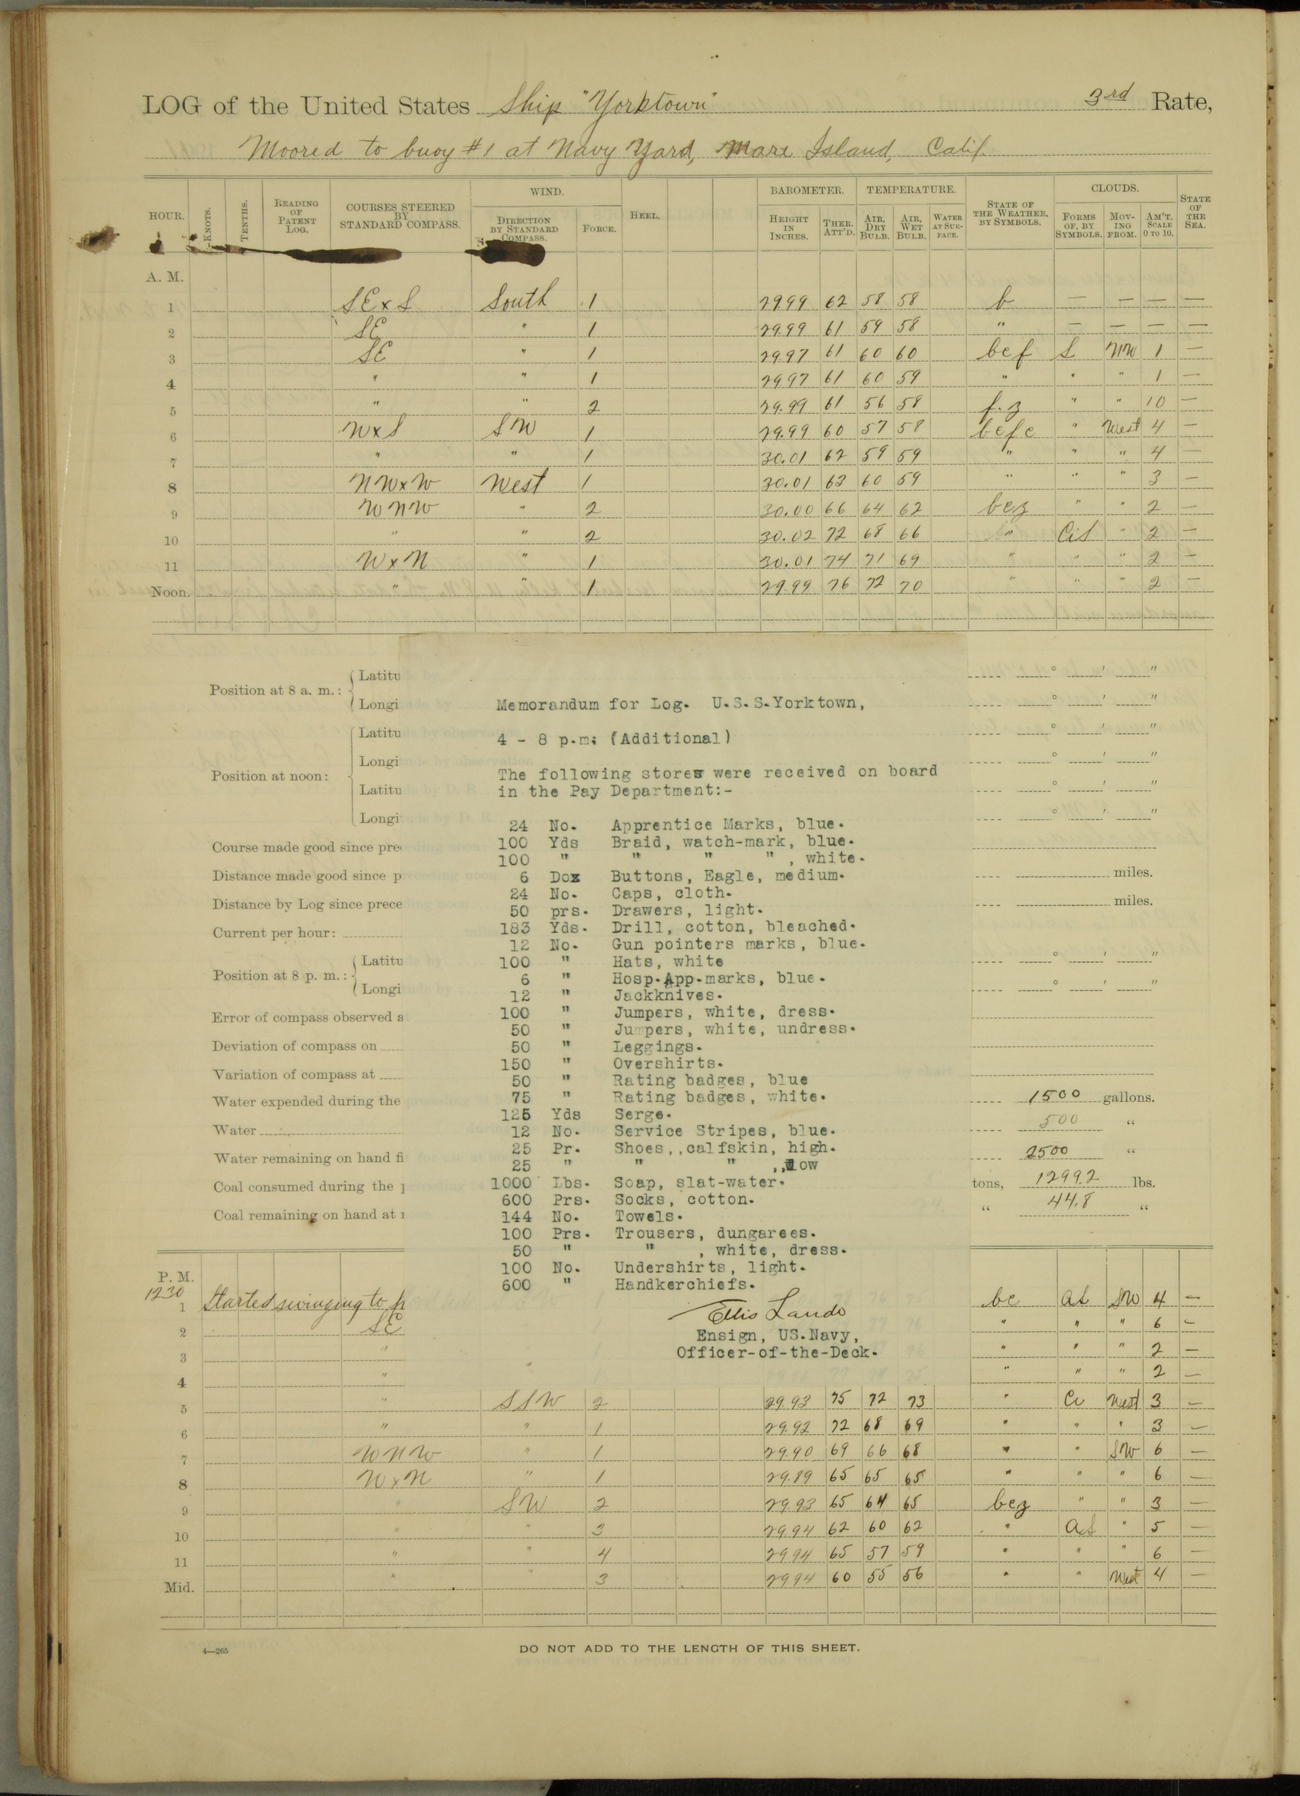 LOG of the United States Ship "Yorktown" 3rd Rate,
Moored to buoy #1 at Navy Yard, Mare Island, Calif.
HOUR. KNOTS. TENTHS. READING OF PATENT LOG. COURSES STEERED BY STANDARD COMPASS. WIND. DIRECTION BY STANDARD COMPASS. FORCE. HEEL. BAROMETER. HEIGHT IN INCHES. THER. ATT'D. TEMPERATURE. AIR, DRY BULB. AIR, WET BULB. WATER AT SURFACE. STATE OF THE WEATHER, BY SYMBOLS. CLOUDS. FORMS OF, BY SYMBOLS. MOVING FROM. AM'T. SCALE 0 TO 10. STATE OF THE SEA.
A. M.
1 SExS South 1 29.99 62 58 58 b — — — —
2 SE " 1 29.99 61 59 58 " — — — —
3 SE " 1 29.97 61 60 60 bcf S NW 1 —
4 " " 1 29.97 61 60 59 " " " 1 —
5 " " 2 29.99 61 56 58 f.z " " 10 —
6 WxS SW 1 29.99 60 57 58 " West 4 —
7 " " 1 30.01 62 59 59 " " " 4 —
8 NWxW West 1 30.01 63 60 59 " " " 3 —
9 WNW " 2 30.00 66 64 62 bcz " " 2 —
10 " " 2 30.02 72 68 66 " CiS " 2 —
11 WxN " 1 30.01 74 71 69 " " " 2 —
Noon. " " 1 29.99 76 72 70 " " " 2 —
Position at 8 a. m.: Latitu ° ' "
Longi ° ' "
Position at noon: Latitu ° ' "
Longi ° ' "
Latitu ° ' "
Longi ° ' "
Course made good since pre
Distance made good since p miles.
Distance by Log since prece miles.
Current per hour:
Position at 8 p. m.: Latitu ° ' "
Longi ° ' "
Error of compass observed a
Deviation of compass on
Variation of compass at
Water expended during the 1500 gallons.
Water 500 "
Water remaining on hand fi 2500 "
Coal consumed during the tons, 1299.2 lbs.
Coal remaining on hand at " 44.8 "
Memorandum for Log. U.S.S.Yorktown,
4 - 8 p.m: (Additional)
The following stores were received on board
in the Pay Department:-
24 No. Apprentice Marks, blue.
100 Yds Braid, watch-mark, blue.
100 " " " " , white.
6 Doz Buttons, Eagle, medium.
24 No. Caps, cloth.
50 prs. Drawers, light.
183 Yds. Drill, cotton, bleached.
12 No. Gun pointers marks, blue.
100 " Hats, white
6 " Hosp.App.marks, blue.
12 " Jackknives.
100 " Jumpers, white, dress.
50 " Jumpers, white, undress.
50 " Leggings.
150 " Overshirts.
50 " Rating badges, blue
75 " Rating badges, white.
125 Yds Serge.
12 No. Service Stripes, blue.
25 Pr. Shoes,,calfskin, high.
25 " " " ,,low
1000 Lbs. Soap, slat-water.
600 Prs. Socks, cotton.
144 No. Towels.
100 Prs. Trousers, dungarees.
50 " " , white, dress.
100 No. Undershirts, light.
600 " Handkerchiefs.
Ellis Lando
Ensign, US.Navy,
Officer-of-the-Deck.
P. M.
1230
1 Started swinging to bc aS SW 4 —
2 SE " " " 6 —
3 " " " " 2 —
4 " " " " 2 —
5 " SSW 2 29.93 75 72 73 " Ci West 3 —
6 " " 1 29.92 72 68 69 " " " 3 —
7 WNW " 1 29.90 69 66 68 " " SW 6 —
8 WxN " 1 29.89 65 65 65 " " " 6 —
9 " SW 2 29.93 65 64 65 bcz " " 3 —
10 " " 3 29.94 62 60 62 " aS " 5 —
11 " " 4 29.94 65 57 59 " " " 6 —
Mid. " " 3 29.94 60 55 56 " " West 4 —
4—265
DO NOT ADD TO THE LENGTH OF THIS SHEET.